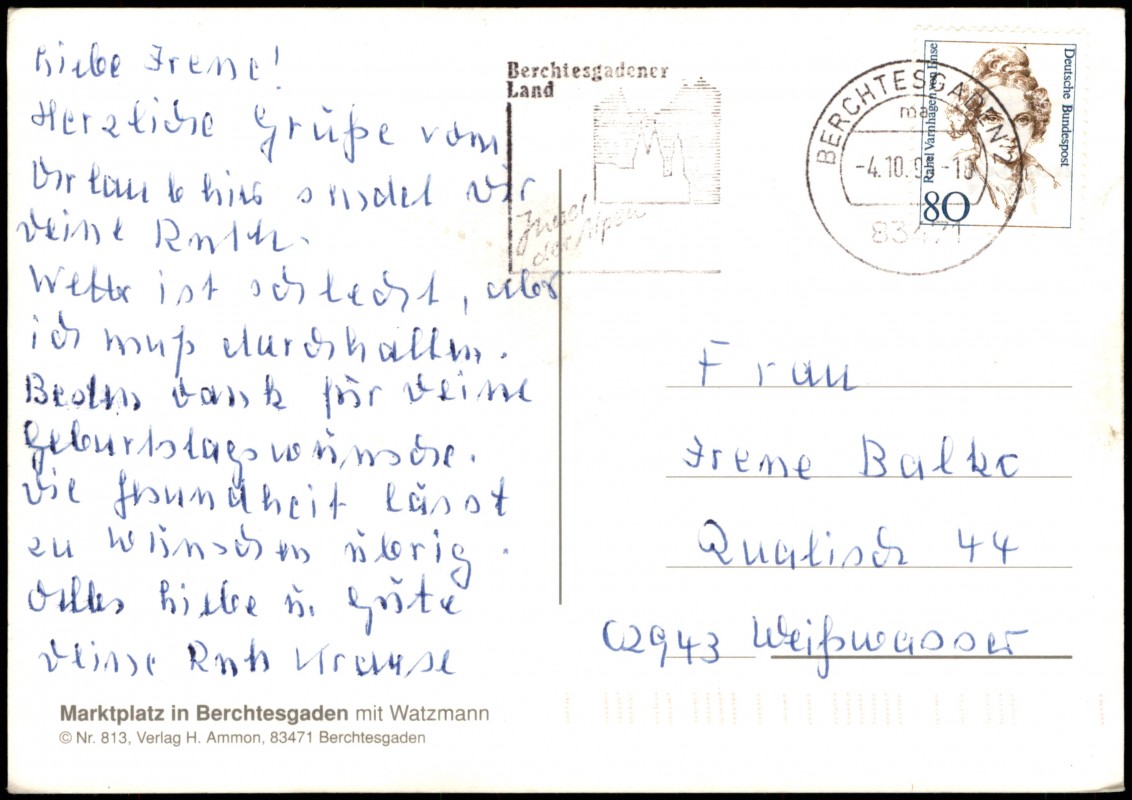 Liebe Irene!
Herzliche Grüße vom
Urlaub hier sendet Dir
Deine Ruth.
Wetter ist schlecht, aber
ich muß durchhalten.
Besten Dank für Deine
Geburtstagswünsche.
Die Gesundheit lässt
zu wünschen übrig.
Alles Liebe u. Gute
Deine Ruth Krause
Marktplatz in Berchtesgaden mit Watzmann
© Nr. 813, Verlag H. Ammon, 83471 Berchtesgaden
Berchtesgadener
Land
Insel
der Alpen
BERCHTESGADEN 2
ma
-4.10.9 -10
83471
Deutsche Bundespost
Rahel Varnhagen von Ense
80
Frau
Irene Balko
Qualisch 44
02943 Weißwasser